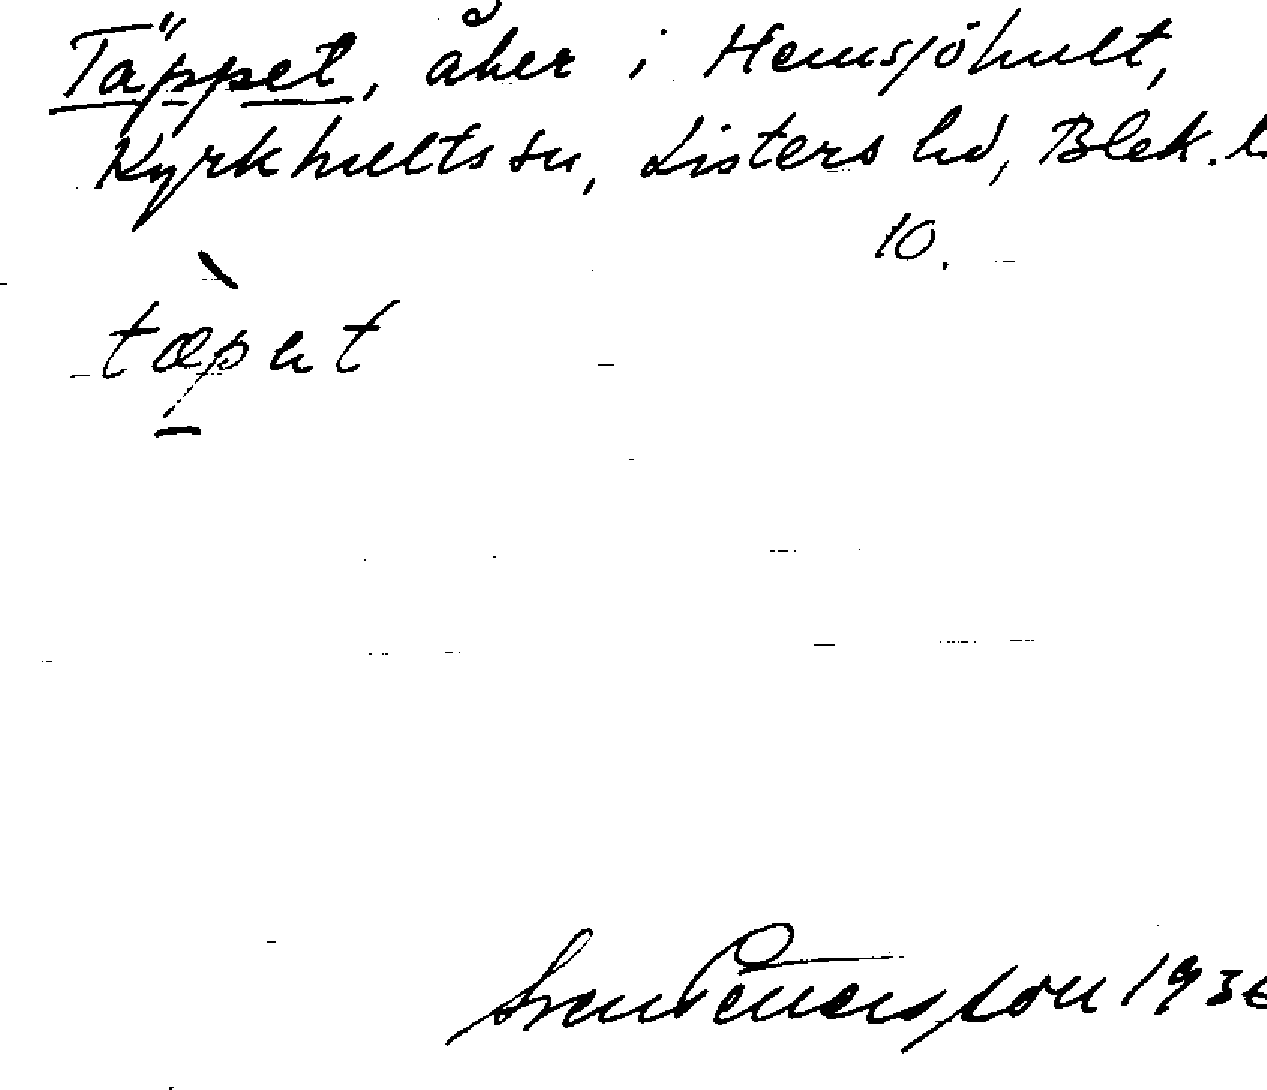 Täppet, åker i Hemsjöhult,
Kyrkhults sn, Listers hd, Blek. l
10.
tæ̀pat
Sven Pettersson 1936